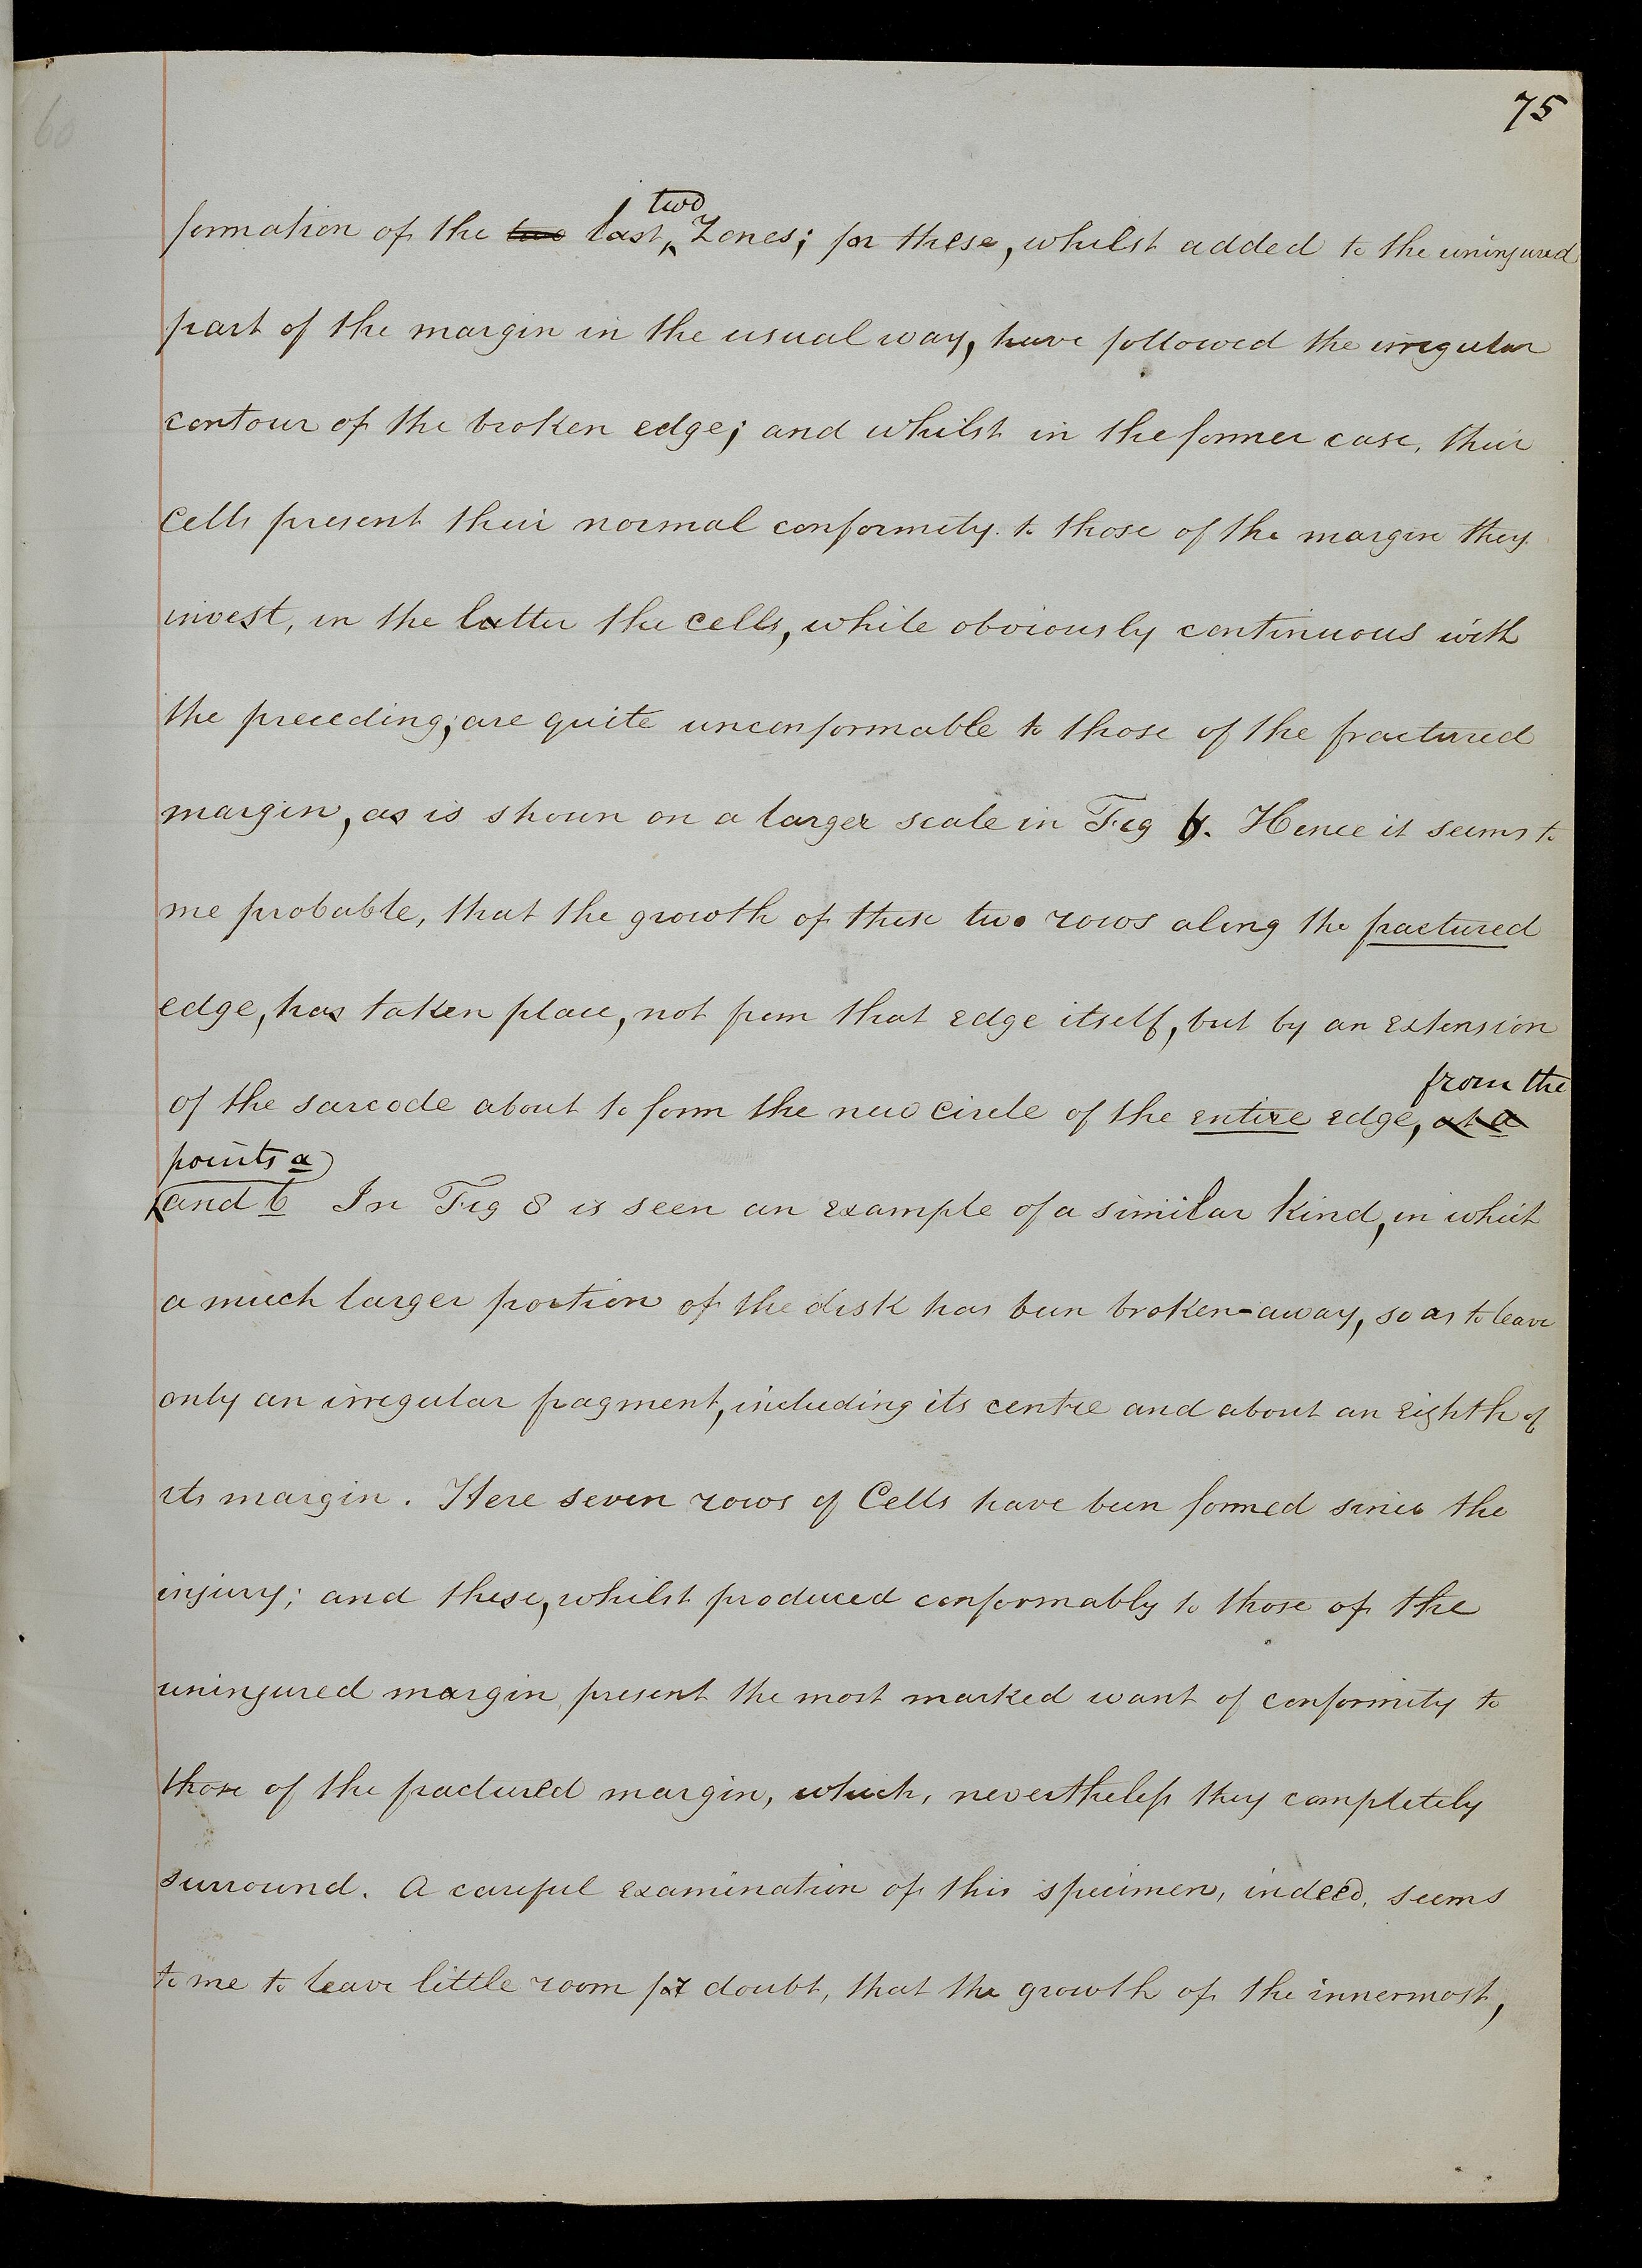 60
75
two
formation of the two last, Zones; for these, whilst added to the uninjured
part of the margin in the usual way, have followed the irregular
contour of the broken edge; and whilst in the former case, their
cells present their normal conformity to those of the margin they
invest, in the latter the cells, while obviously continuous with
the preceding, are quite unconformable to those of the fractured
margin, as is shown on a larger scale in Fig . Hence it seems to
me probable, that the growth of these two rows along the fractured
edge, has taken place, not from that edge itself, but by an extension
from the
of the sarcode about to form the new circle of the entire edge, at a
points a
and b In Fig 8 is seen an example of a similar kind, in which
a much larger portion of the disk has been broken-away, so as to leave
only an irregular fragment, including its centre and about an eighth of
its margin. Here seven rows of Cells have been formed since the
injury; and these, whilst produced conformably to those of the
uninjured margin, present the most marked want of conformity to
those of the fractured margin, which, nevertheless they completely
surround. A careful examination of this specimen, indeed, seems
to me to leave little room for doubt, that the growth of the innermost,